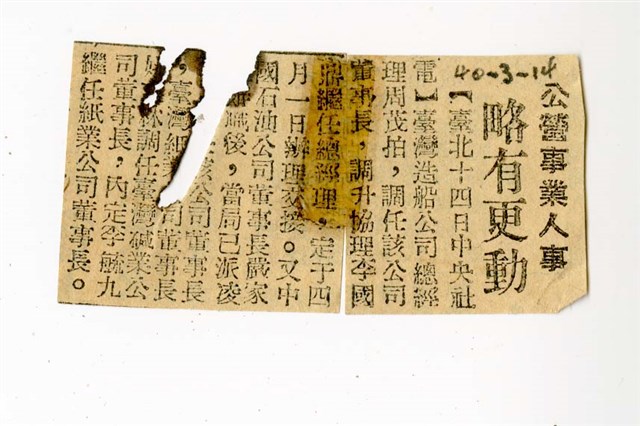 40-3-14
公營事業人事
略有更動
【臺北十四日中央社
電】臺灣造船公司總經
理周茂柏，調任該公司
董事長，調升協理李國
鼎繼任總經理，定于四
月一日辦理交接。又中
國石油公司董事長嚴家
職後，當局已派凌
該公司董事長
，臺灣紙業 司董事長
林調任臺灣碱業公
司董事長，內定李毓九
繼任紙業公司董事長。